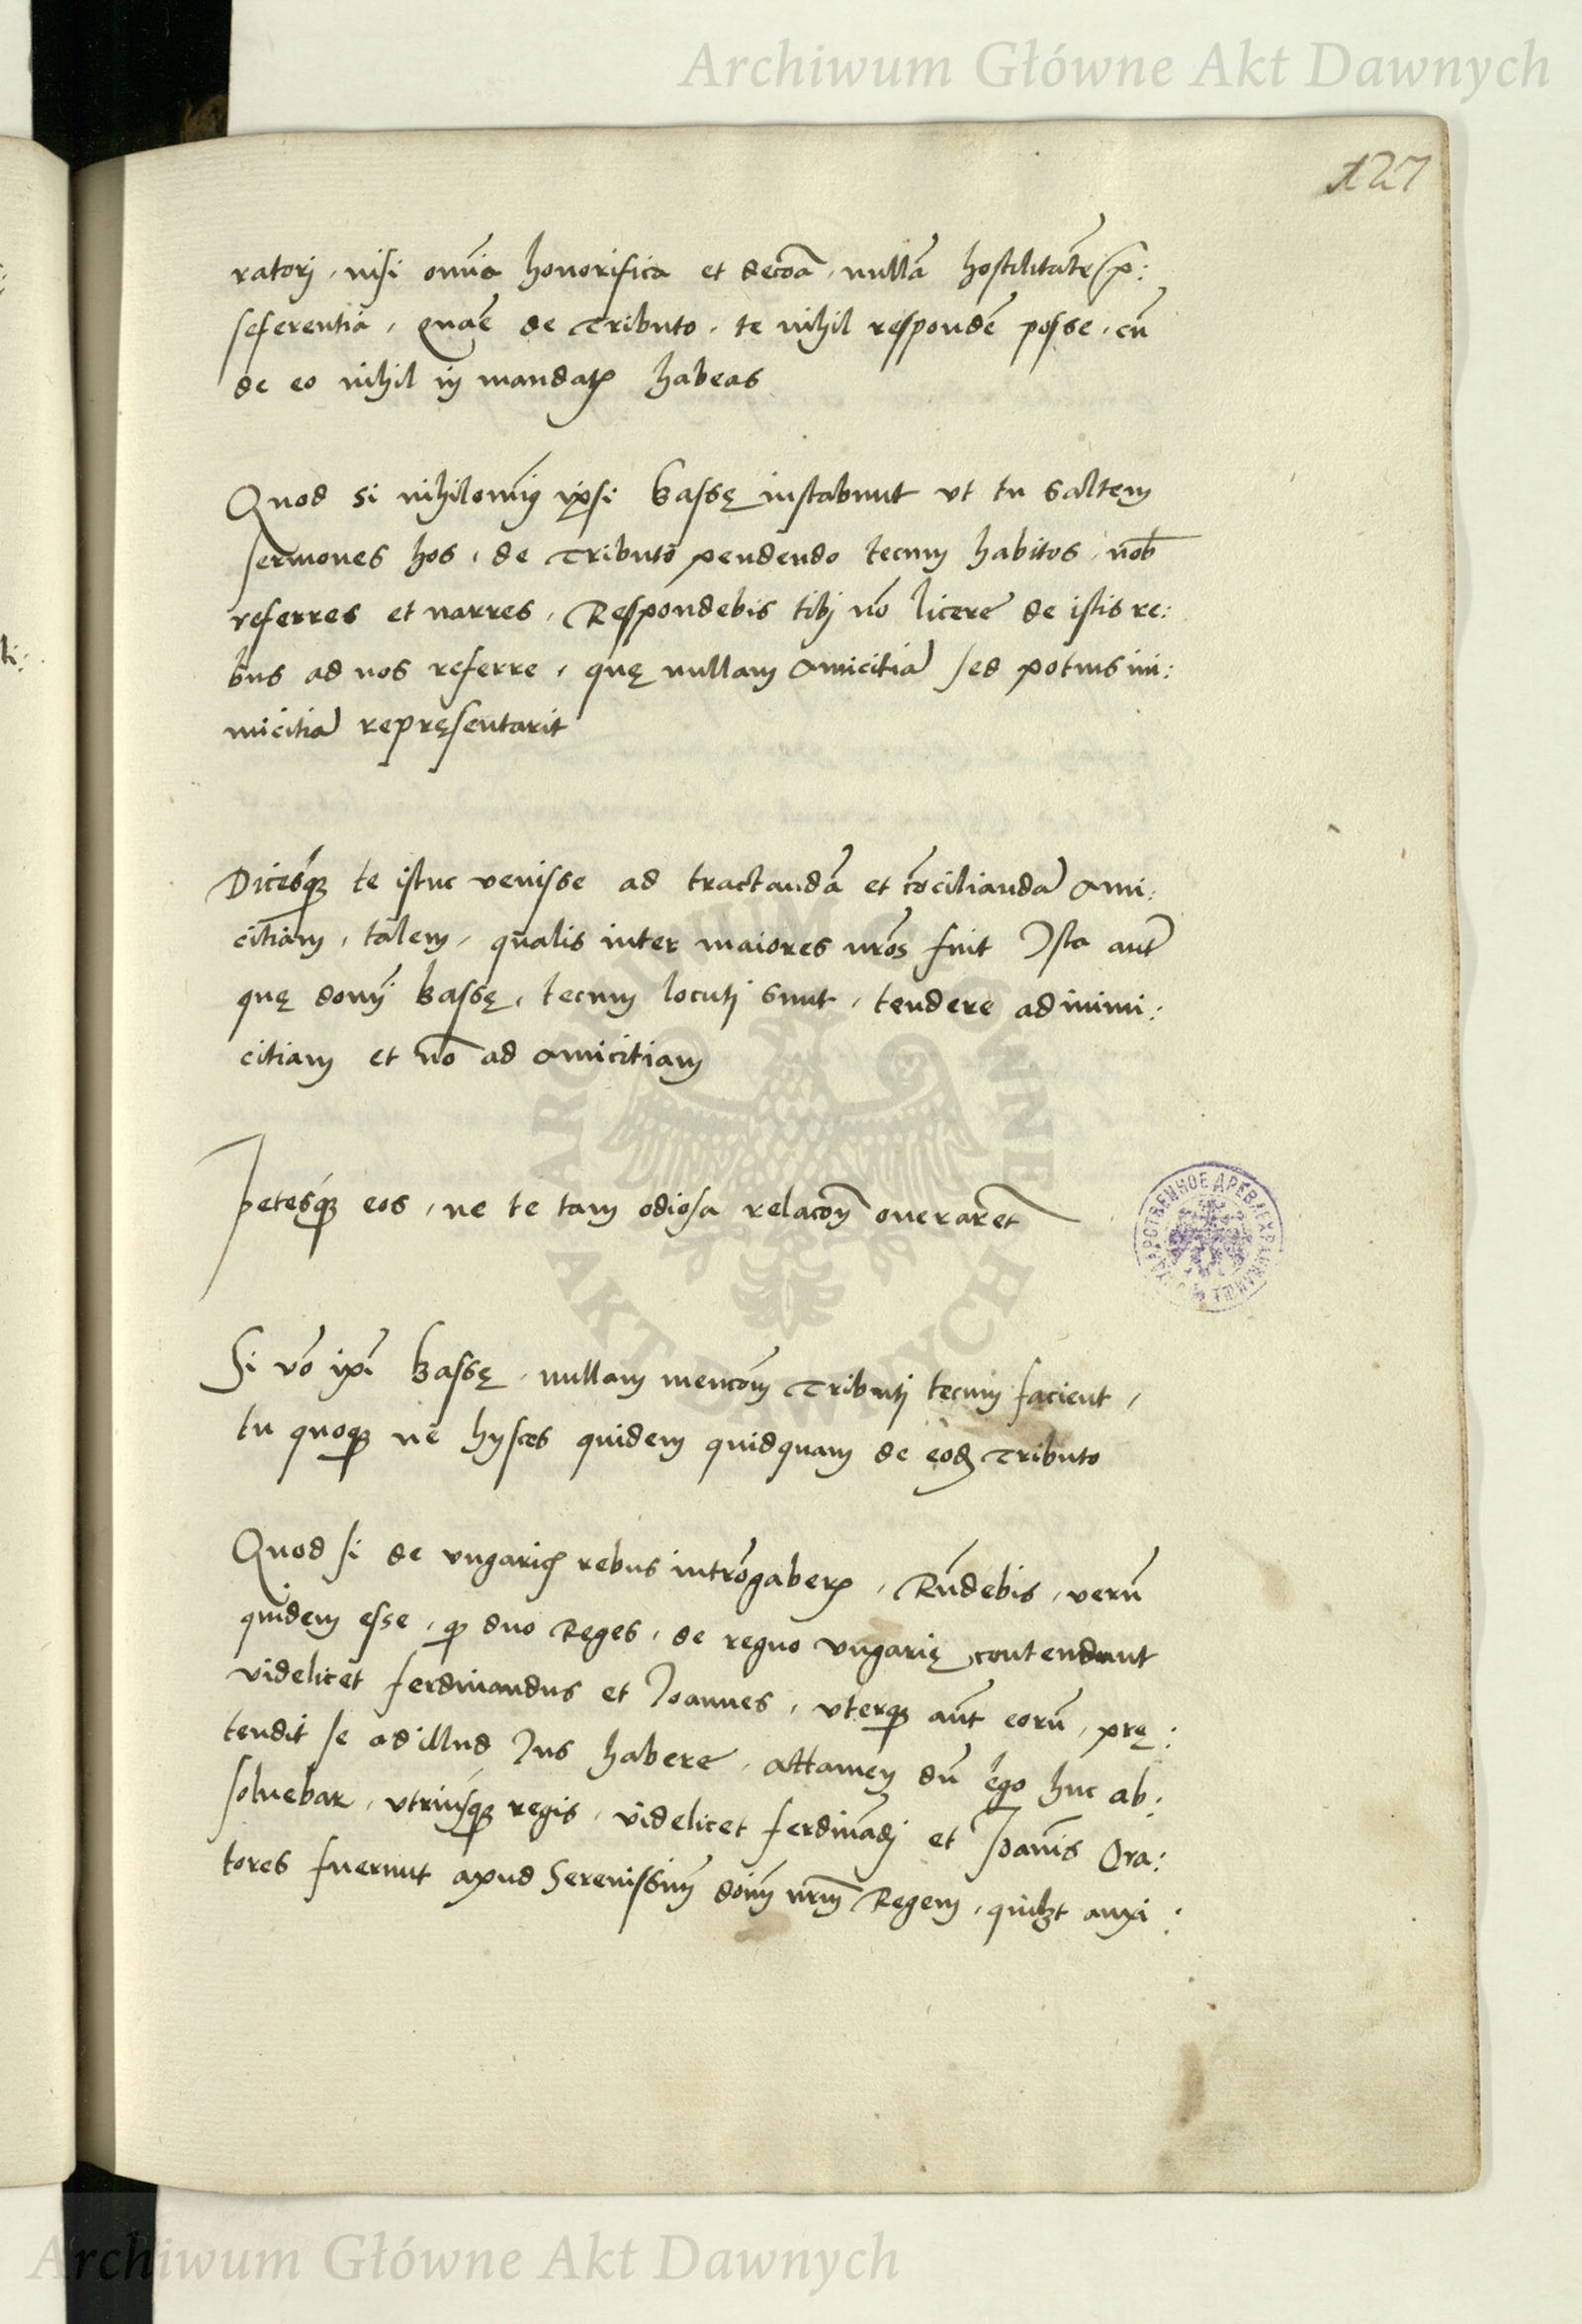 Archiwum Główne Akt Dawnych
127
ratorj, nisi omīa honorifica et decōa, nullā hostilitatē p̄:
seferentia, Quaē de Tributo, te nihil respondē posse, cū
de eo nihil in mandatꝭ habeas
Quod si nihilomīꝯ ipsi Bassę instabunt ut tu saltem
sermones hos, de Tributo pendendo tecum habitos, nob̄
referres et narres, Respondebis tibj nō licere de istis re:
bus ad nos referre, quę nullam amicitiā sed potius ini:
micitiā repręsentarit
Dicesqꝫ te istuc venisse ad tractandā et cōciliandā ami:
citiam, talem, qualis inter maiores nr̄os fuit Ista aut̄
quę domī Bassę, tecum locutj sunt, tendere ad inimi:
citiam et nō ad amicitiam
Petesqꝫ eos, ne te tam odiosa relacōn onerarēt
Si v̄o ip̄i Bassę, nullam mencōm Tributj tecum facient,
tu quoqꝫ ne hysces quidem quidquam de eod Tributo
Quod si de ungaricꝭ rebus intr̄ogaberꝭ, Rn̄debis, verū
quidem esse, ꝙ duo Reges, de regno ungarię contendunt
videlicet ferdinandus et Joannes, uterqꝫ aut̄ eorū, prę:
tendit se ad illud Ius habere, attamen dū ego huc ab:
soluebar, utriusqꝫ regis, videlicet ferdinādj et Joanīs Ora:
tores fuerunt apud Serenissimū dom̄ nr̄m Regem, quilꝫt auxi:
ti:
ARCHIWUM GŁÓWNE AKT DAWNYCH
Archiwum Główne Akt Dawnych